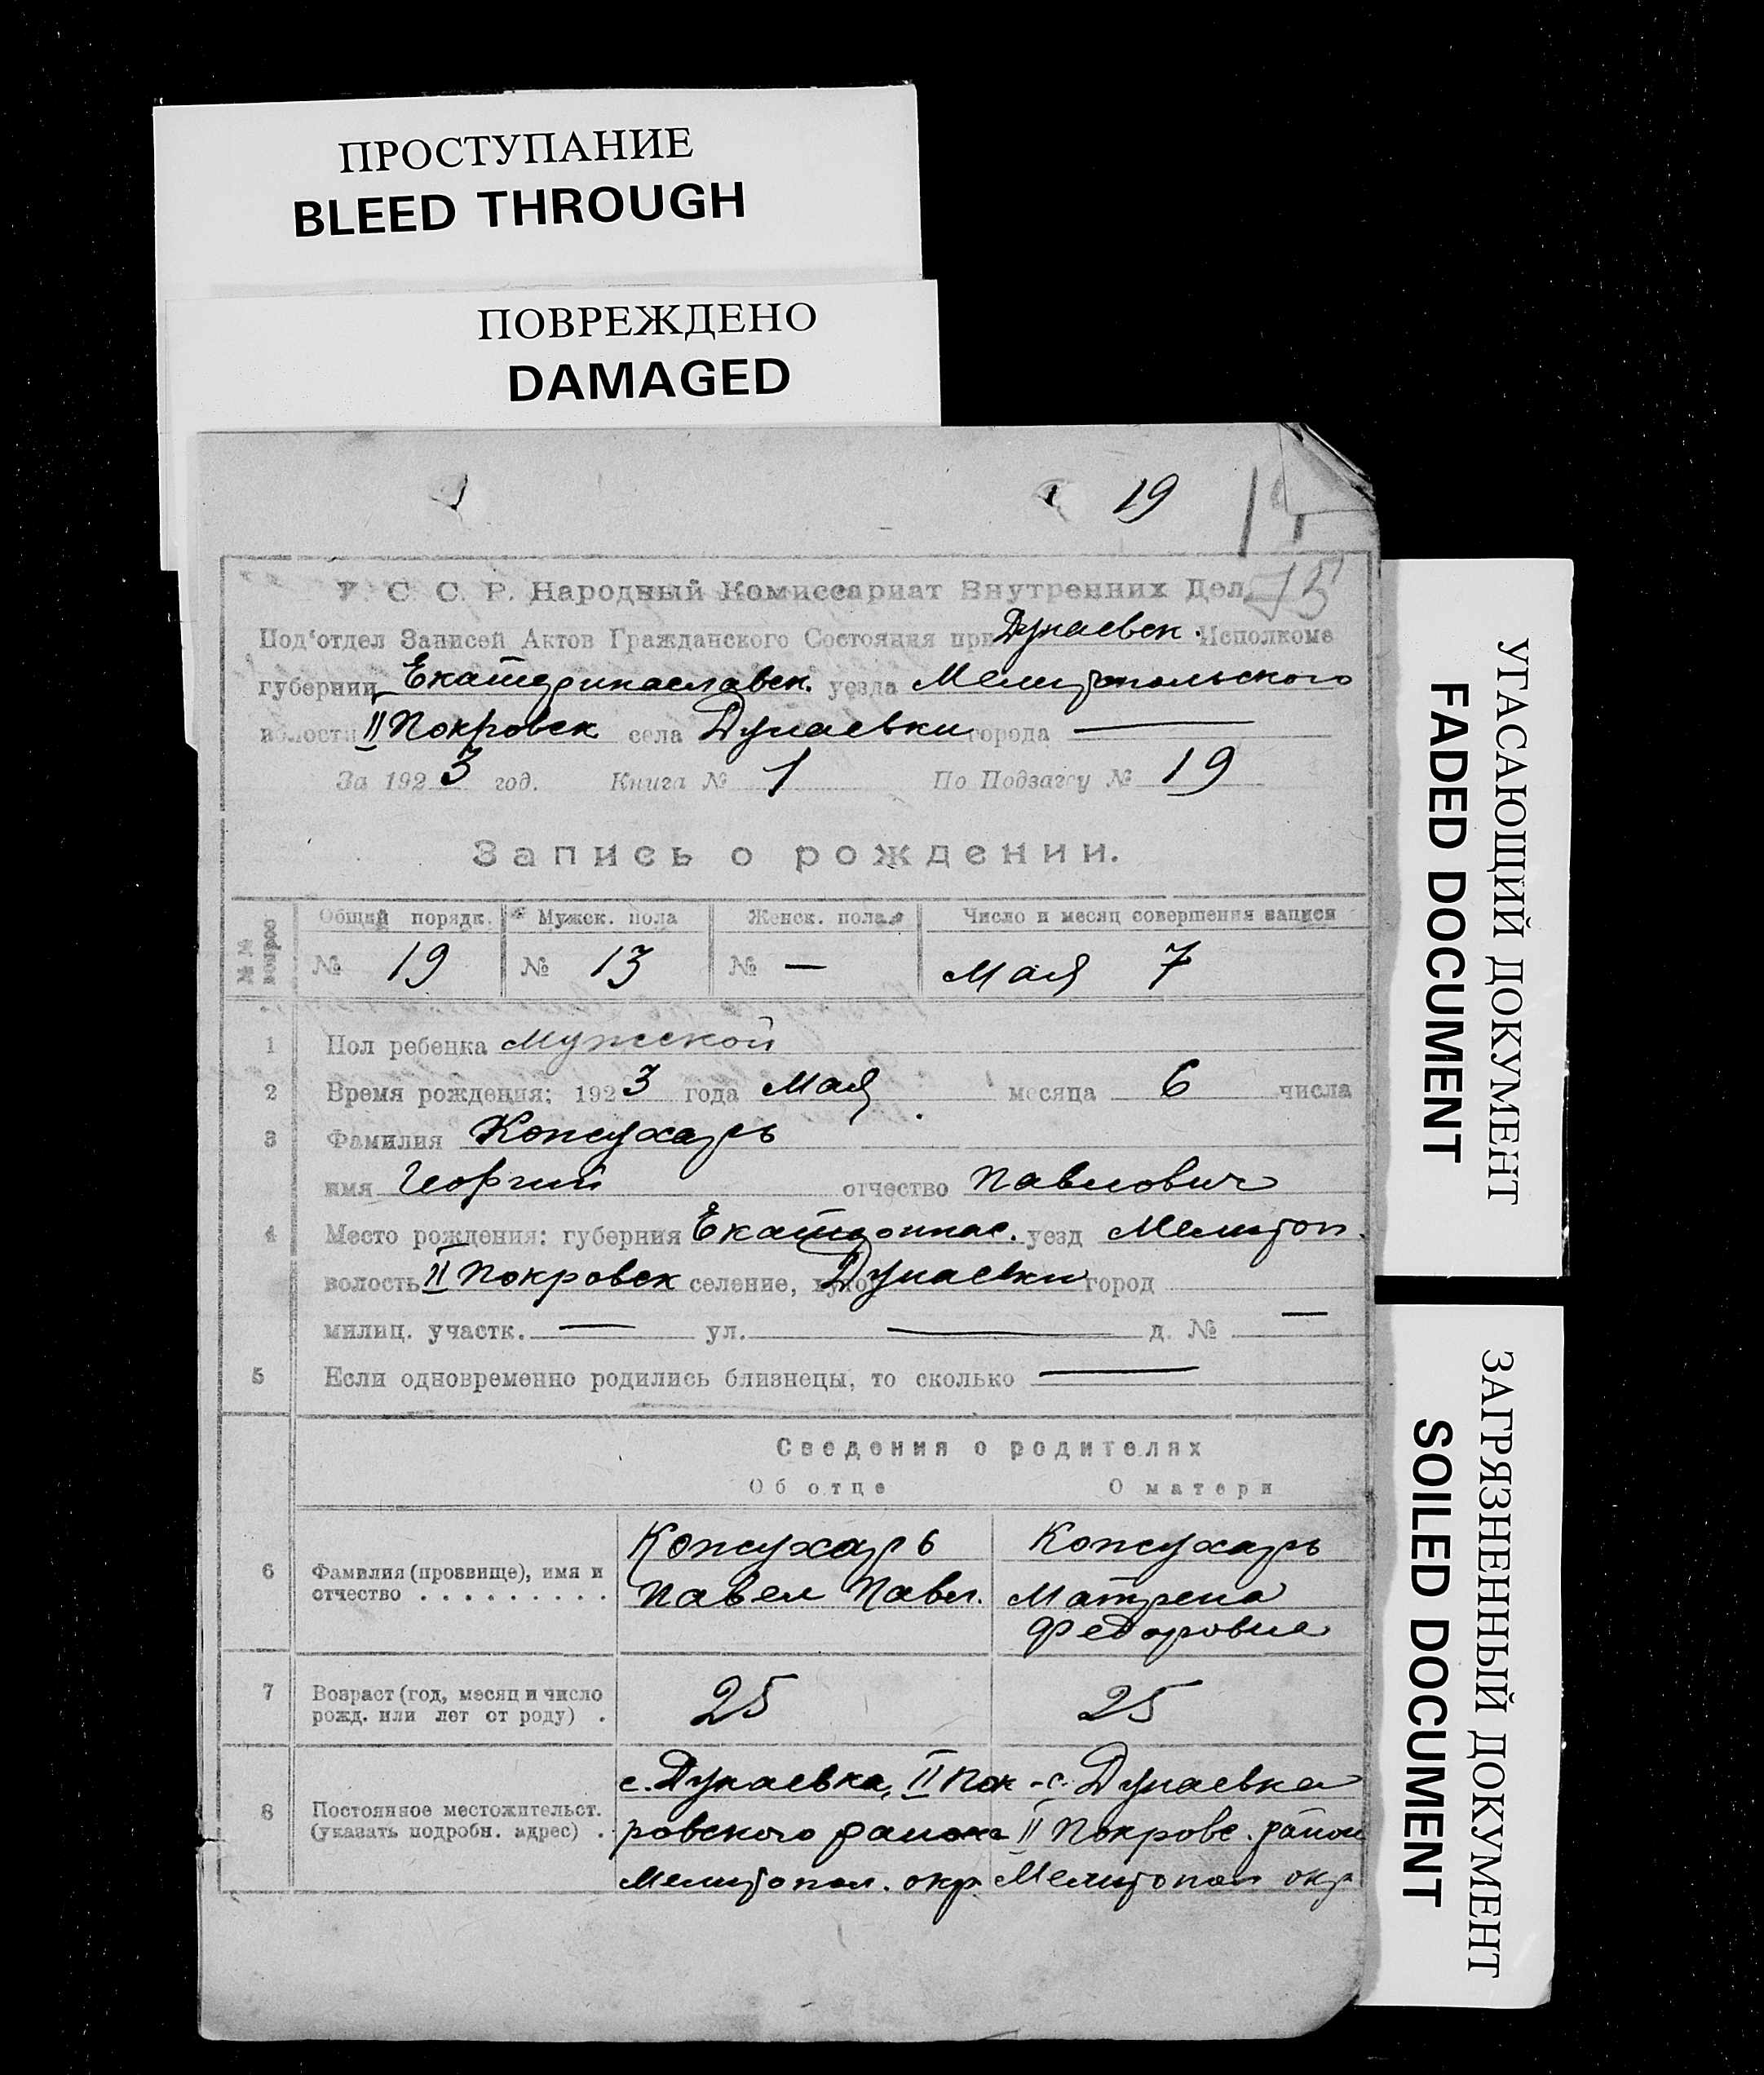 ПРОСТУПАНИЕ
BLEED THROUGH
ПОВРЕЖДЕНО
DAMAGED
19
75
У. С. С. Р. Народный Комиссариат Внутренних Дел.
Под‘отдел Записей Актов Гражданского Состояния при Дунаевск. Исполкоме
губернии Екатеринославск. уезда Мелитопольского
волости II Покровск села Дунаевки города —
За 1923 год. Книга № 1 По Подзагсу № 19
Запись о рождении.
№ № вопрос
Общий порядк. Мужск. пола Женск. пола Число и месяц совершения записи
№ 19 № 13 № — Мая 7
1 Пол ребенка Мужской
2 Время рождения: 1923 года Мая месяца 6 числа
3 Фамилия Кожухарь
имя Георгий отчество Павлович
4 Место рождения: губерния Екатеринос. уезд Мелитоп.
волость II Покровск селение, хутор Дунаевки город
милиц. участк. — ул. — д. № —
5 Если одновременно родились близнецы, то сколько —
Сведения о родителях
Об отце О матери
6 Фамилия (прозвище), имя и отчество . . . . . . . . .
Кожухарь Кожухарь
Павел Павл. Матрена
Федоровна
7 Возраст (год, месяц и число рожд. или лет от роду) .
25 25
8 Постоянное местожительст. (указать подробн. адрес) .
с. Дунаевка, II Пок- с. Дунаевка
ровского района II Покровс. район
Мелитопол. окр. Мелитопол окр
УГАСАЮЩИЙ ДОКУМЕНТ
FADED DOCUMENT
ЗАГРЯЗНЕННЫЙ ДОКУМЕНТ
SOILED DOCUMENT